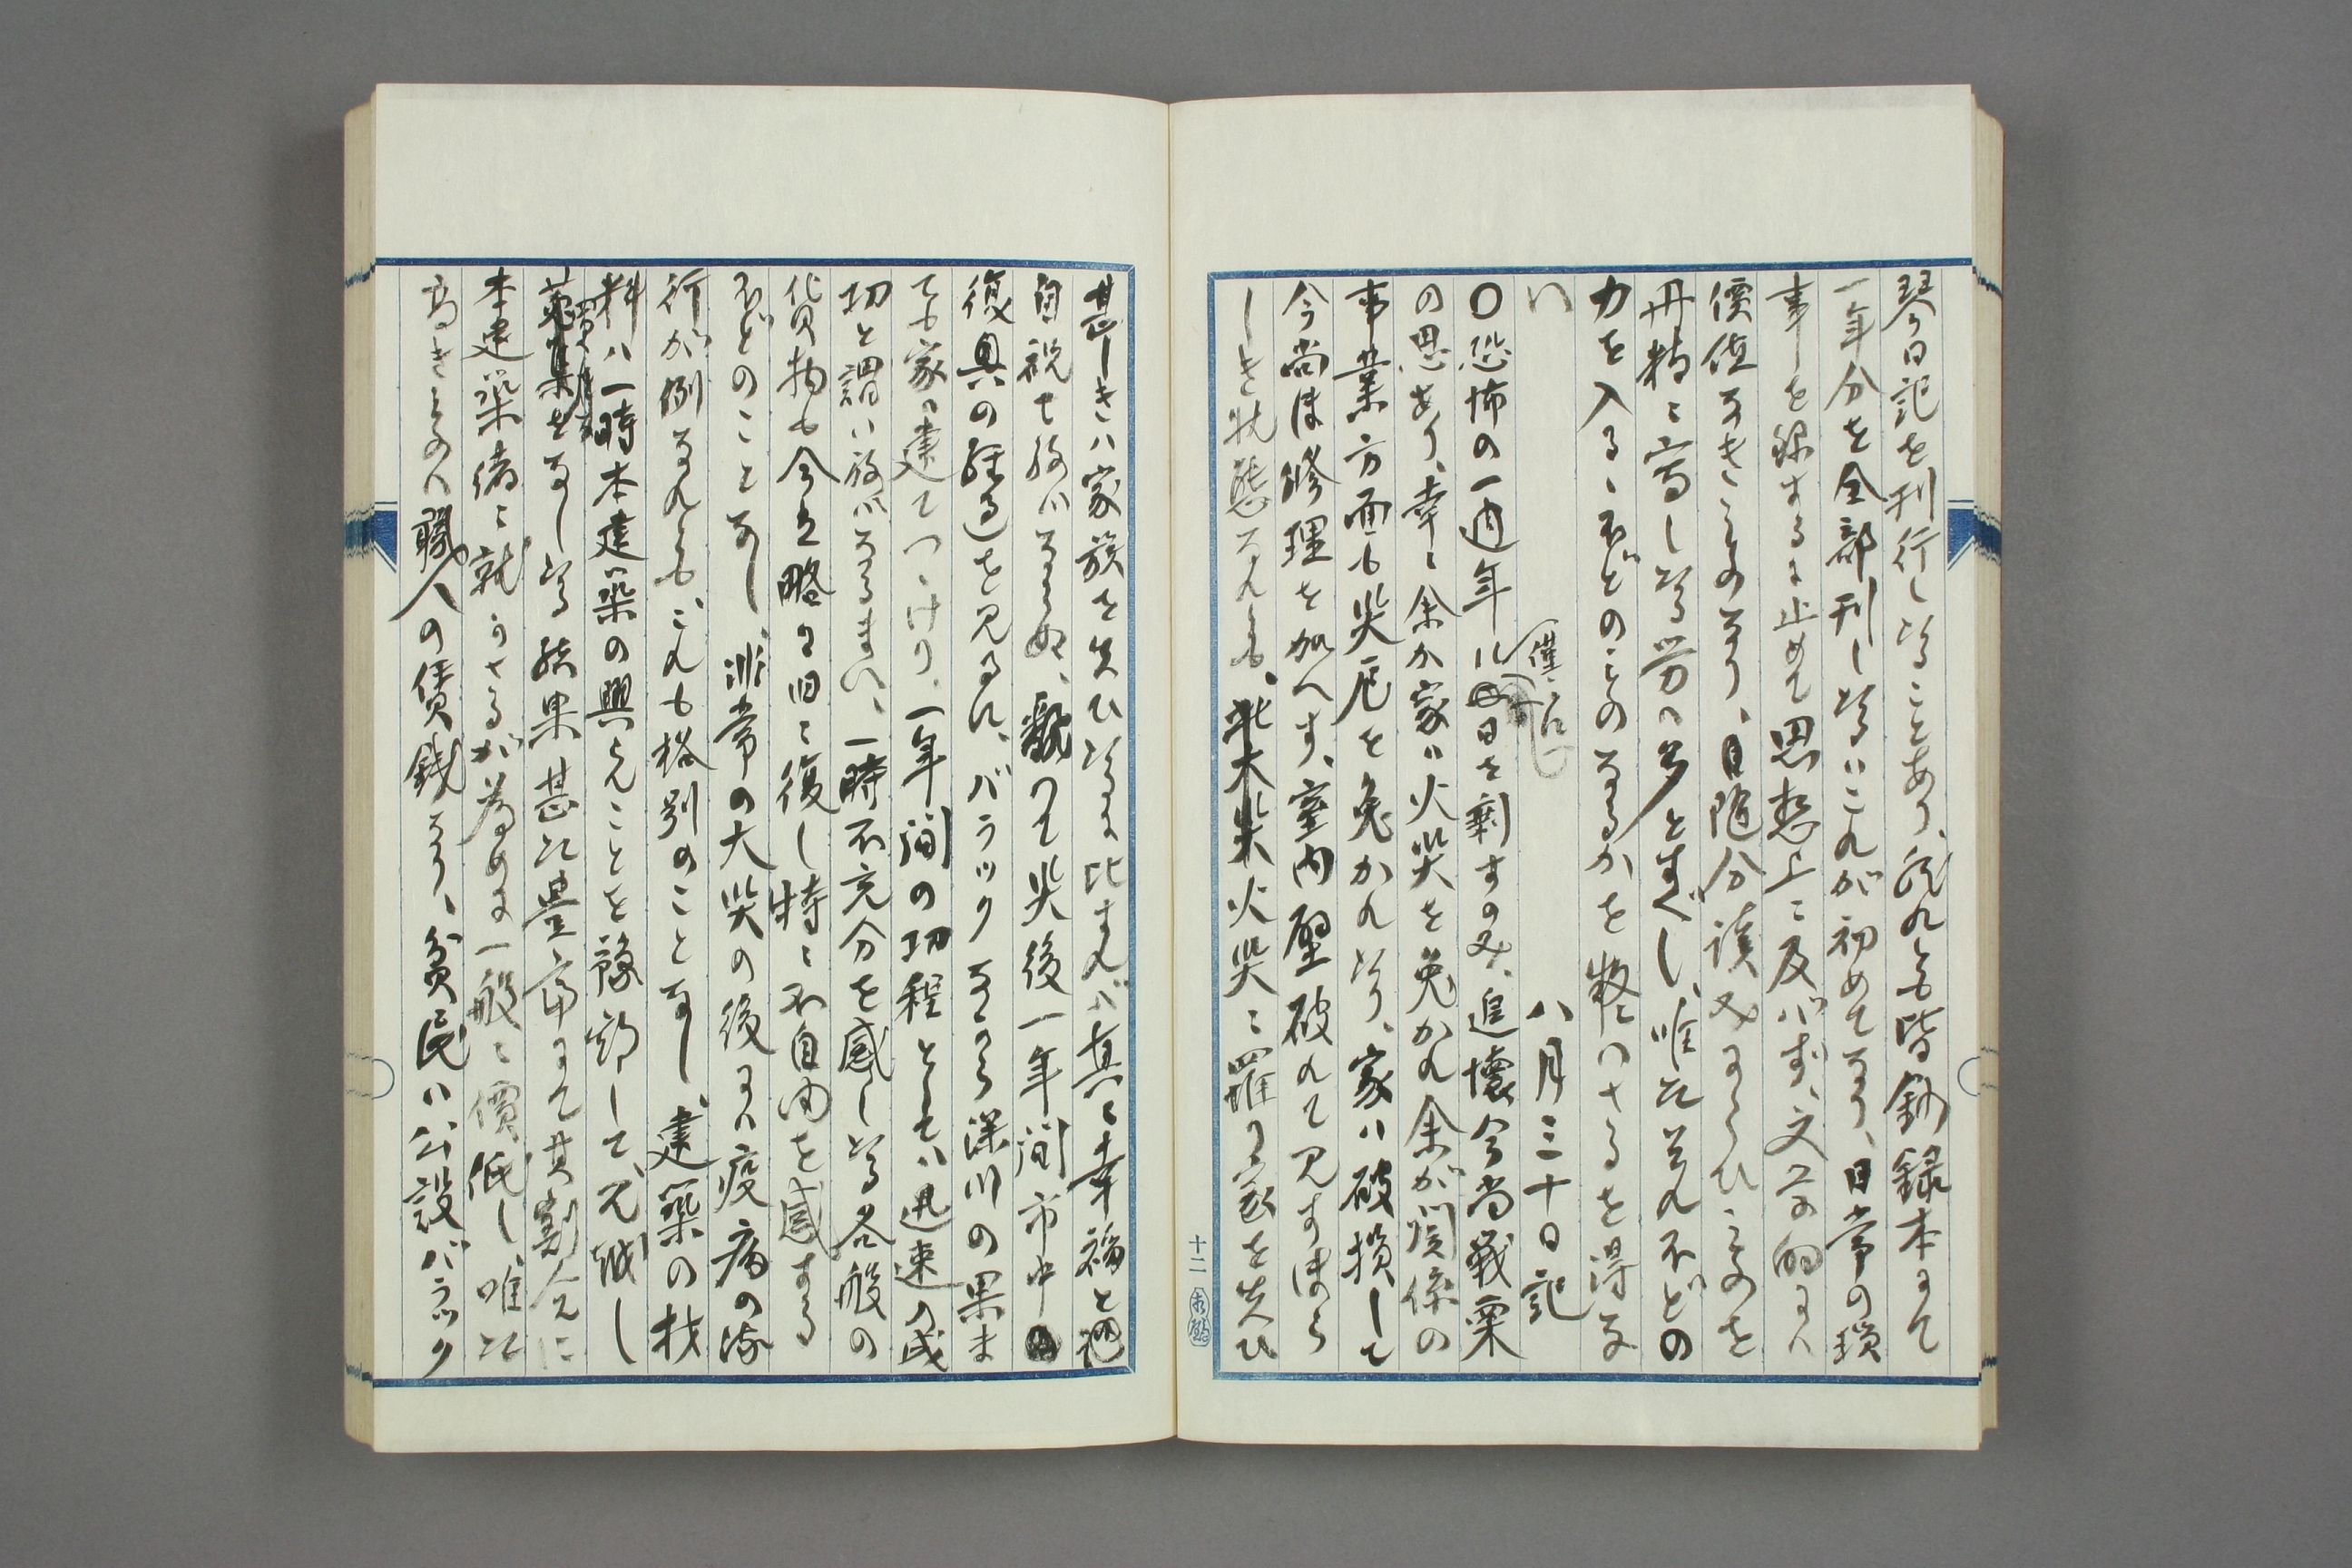 琴日記を刊行しゐることあり、然れとも皆鈔録本にて
一年分を全部刊しゐるハこれが初めてなり、日常の瑣
事を録するに止めて思想上に反バず、文学的にハ
價値なきものなり、自随分読みにくひものを
丹精に写しゐる労ハ多とすべし、唯だそれホどの
力を入るゝホどのものなるかを疑ハさるを得な
い　八月三十日記
〇恐怖の一週年ハ僅に一日を剰すのみ、追懐今尚戦栗
の思あり、幸に余か家ハ火災を免かれ余が関係の
事業方面も災厄を免かれゐり、家ハ破損して
今尚ほ修理を加へす、室内壁破れて見すほら
しき状態なれとも、北大災火災に罹り家を失ひ
十二
甚しきハ家族を失ひゐるに比すれバ真に幸福と
自祝せ ハならぬ、飜つて災後一年間市中の
復興の経過を見るに、バラック なから深川の果ま
ても家ハ建てつゝけり、一年間の功程としてハ迅速の成
功と謂ハ ハなるまい、一時不充分を感しゐる各般の
貨物も今ハ略ほ旧に復し特に不自由を感する
ホどのことなし、非常の大災の後にハ疫病の流
行が例なれとも、これも格別のことなし、建築の材
料ハ一時本建築の興らんことを予期して、
をなしゐる結果甚た豊富にて其割合に
本建築備に就かさるが為めに一般に價低し、唯た
高きものハ職人の賃銭なり、貧民ハ公設バラック